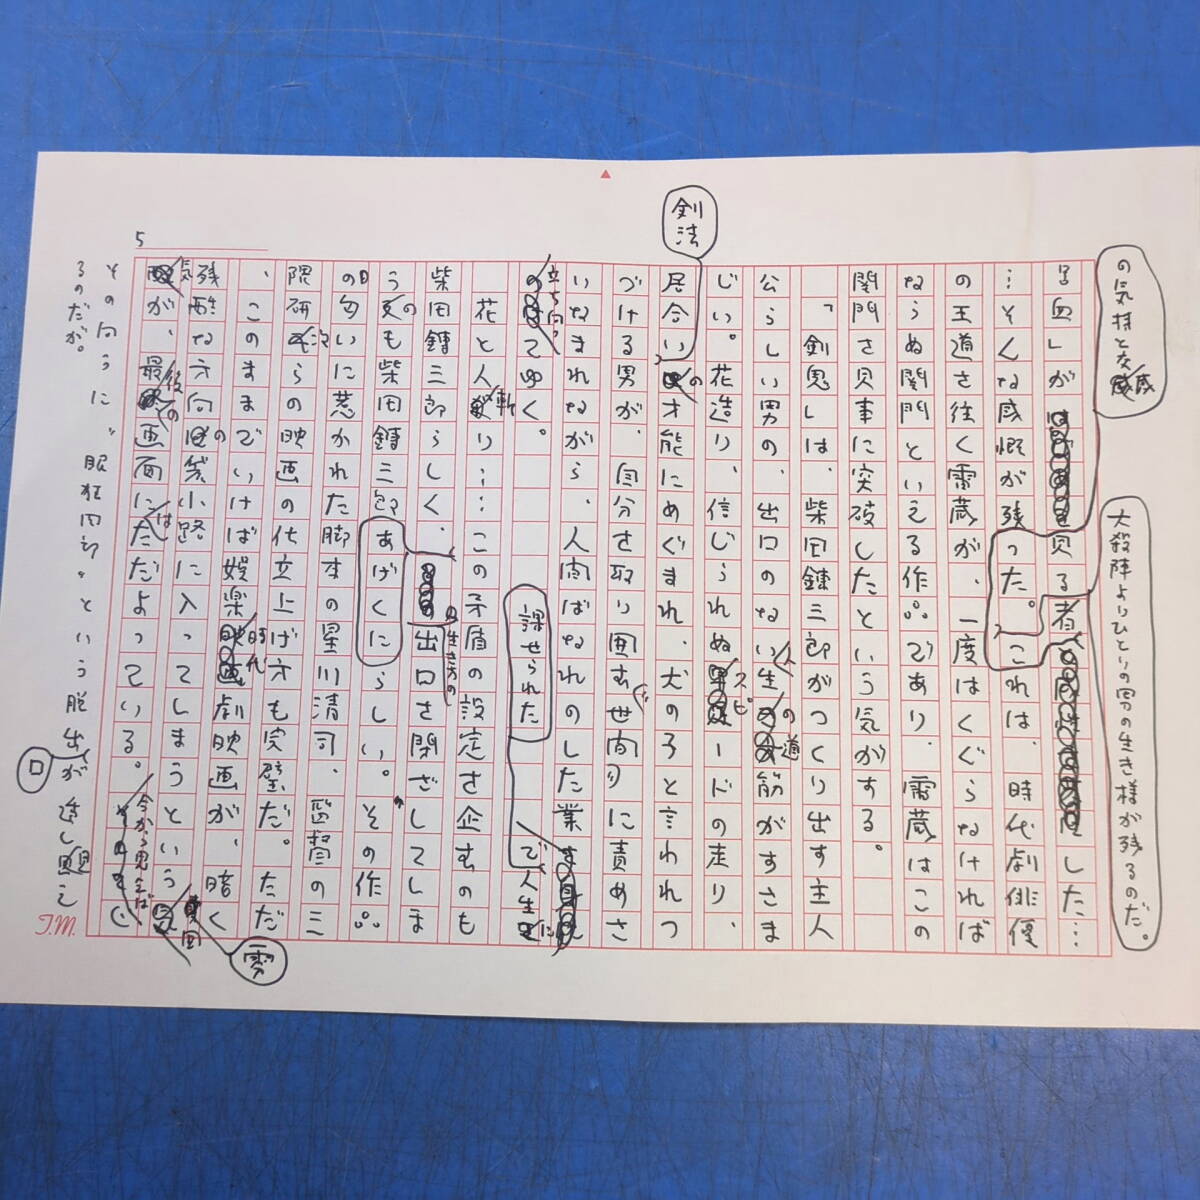 の気持と交感
大殺陣よりひとりの男の生き様が残るのだ。
る血」が 見る者 した…
…そんな感慨が残った。これは、時代劇俳優
の王道を往く雷蔵が、一度はくぐらなければ
ならぬ関門といえる作品であり、雷蔵はこの
関門を見事に突破したという気がする。
「剣鬼」は、柴田錬三郎がつくり出す主人
公らしい男の、出口のない人生の道筋がすさま
じい。花造り、信じられぬスピードの走り、
剣法
居合いの才能にめぐまれ、犬の子と言われつ
づける男が、自分を取り囲む世間に責めさ
いなまれながら、人間ばなれのした業
課せられた
で人生に
立ち向ってゆく。
花と人斬り……この矛盾の設定を企むのも
柴田錬三郎らしく、 の生き方の出口を閉ざしてしま
うのも柴田錬三郎 あげくに らしい。その作品
の匂いに惹かれた脚本の星川清司、監督の三
隅研次らの映画の仕立上げ方も完璧だ。ただ
、このままでいけば娯楽時代劇映画が、暗く
残酷な方向の袋小路に入ってしまうという
雰囲
気が、最後の画面にはただよっている。
今から思えば
その向うに〝眠狂四郎〟という脱出口が透し見え
るのだが。
5
T.M.